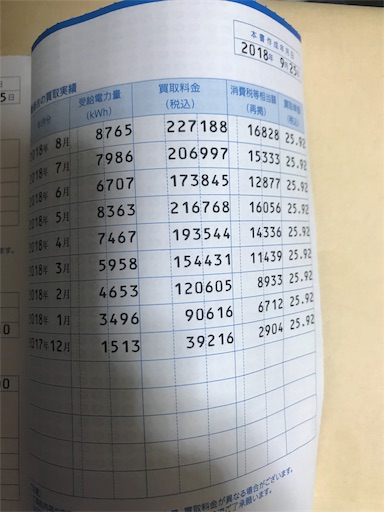 本書作成年月日
2018年 9月25日
の買取実績
受給電力量
(kWh)
買取料金
(税込)
消費税等相当額
(再掲)
(税込)
2018年 8月 8765 227188 16828 25.92
2018年 7月 7986 206997 15333 25.92
2018年 6月 6707 173845 12877 25.92
2018年 5月 8363 216768 16056 25.92
2018年 4月 7467 193544 14336 25.92
2018年 3月 5958 154431 11439 25.92
2018年 2月 4653 120605 8933 25.92
2018年 1月 3496 90616 6712 25.92
2017年12月 1513 39216 2904 25.92
買取料金が異なる場合がございます。
ご了承願います。
5日
ます。
0
00